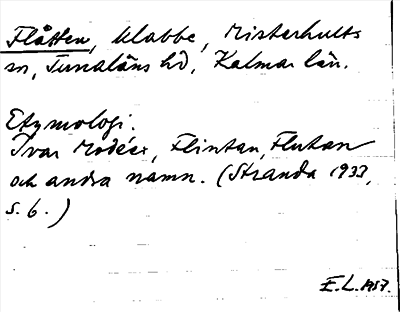 Flåtten, klabbe, Misterhults
sn, Tunaläns hd, Kalmar län.
Etymologi.
Ivar Modéer, Flintan, Flutan
och andra namn. (Stranda 1933,
s. 6.)
E.L. 1957.